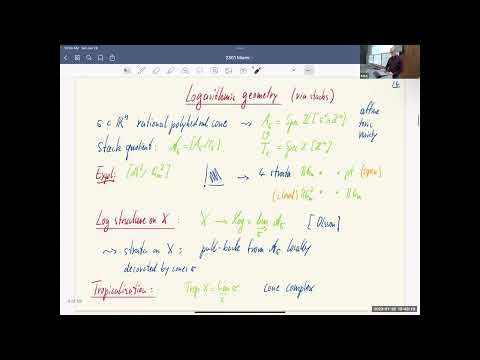 2301 Miami
Logarithmic geometry (via stacks)
σ ⊂ ℝⁿ rational polyhedral cone → A_σ = Spec ℤ[σ^∨ ∩ ℤⁿ] affine toric variety
Stack quotient: 𝒜_σ = [A_σ/T_σ] T_σ = Spec ℤ[ℤⁿ]
Expl: [𝔸²/𝔾_m²] → 4 strata
pt (open)
(closed)
Log structure on X: X → Log = lim 𝒜_σ [Olsson]
⇝ strata on X: pull-back from 𝒜_σ locally
decorated by cones σ
Tropicalization: Trop X = lim σ cone complex